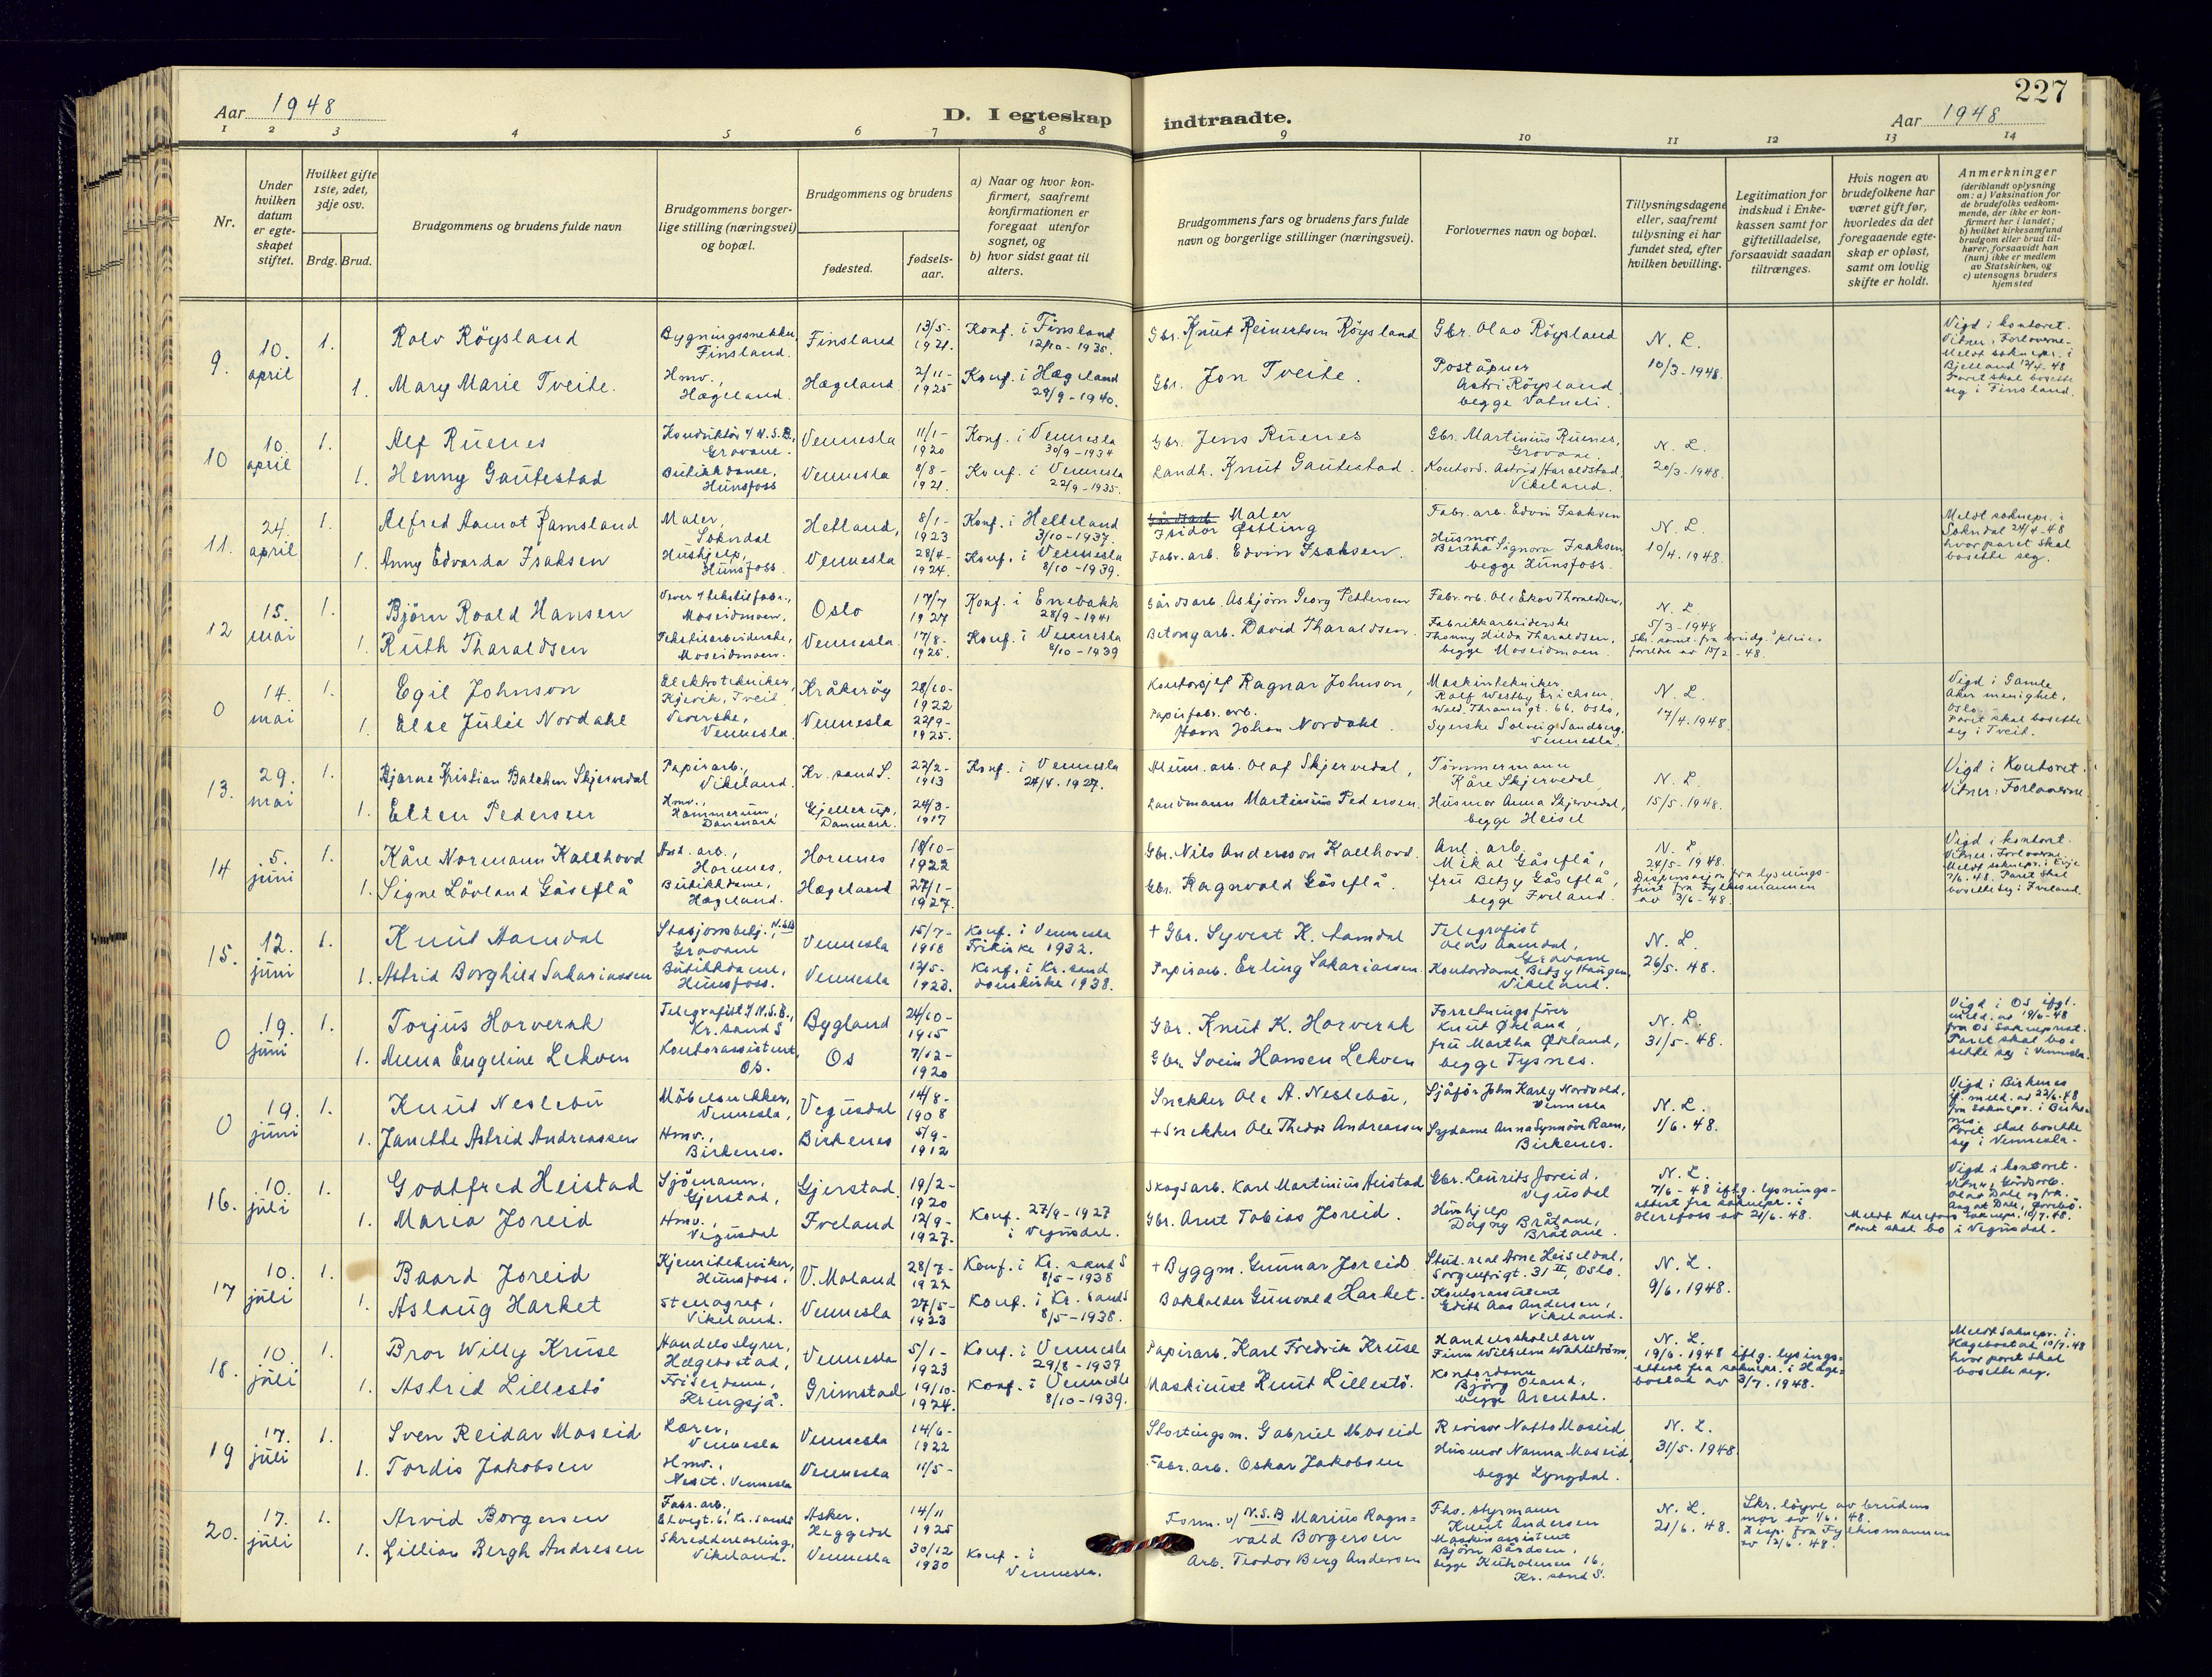 227
Aar 1948
D. I egteskap indtraadte.
Aar 1948
1 2 3 4 5 6 7 8 9 10 11 12 13 14
Nr.
Under
hvilken
datum
er egte-
skapet
stiftet.
Hvilket gifte
1ste, 2det,
3dje osv.
Brdg. Brud.
Brudgommens og brudens fulde navn
Brudgommens borger-
lige stilling (næringsvei)
og bopæl.
Brudgommens og brudens
fødested.
fødsels-
aar.
a) Naar og hvor kon-
firmert, saafremt
konfirmationen er
foregaat utenfor
sognet, og
b) hvor sidst gaat til
alters.
Brudgommens fars og brudens fars fulde
navn og borgerlige stillinger (næringsvei).
Forlovernes navn og bopæl.
Tillysningsdagene
eller, saafremt
tillysning ei har
fundet sted, efter
hvilken bevilling.
Legitimation for
indskud i Enke-
kassen samt for
giftetilladelse,
forsaavidt saadan
tiltrænges.
Hvis nogen av
brudefolkene har
været gift før,
hvorledes da det
foregaaende egte-
skap er opløst,
samt om lovlig
skifte er holdt.
Anmerkninger
(deriblandt oplysning
om: a) Vaksination for
de brudefolks vedkom-
mende, der ikke er kon-
firmert her i landet;
b) hvilket kirkesamfund
brudgom eller brud til-
hører, forsaavidt han
(hun) ikke er medlem
av Statskirken, og
c) utensogns bruders
hjemsted
9. 10. april
1. Rolv Röysland
Bygningssnekker, Finsland.
Finsland
13/5-1921.
Konf. i Finsland
Gbr. Knut Reinertsen Röysland
Gbr. Olav Röysland
N. L.
10/3-1948.
Vigd i kontoret.
Vitner, Forloverne.
Meldt soknepr. i
Bjelland 12/4-48
Paret skal bosette
seg i Finsland.
1. Mary Marie Tveite.
Hmv., Hægeland.
Hægeland
2/11-1925
Konf. i Hægeland 29/9-1940.
Gbr. Jon Tveite.
Poståpner
Astri Röysland
begge Vatneli.
10 10. april
1. Alf Ruenes
Konduktör v/ N.S.B., Grovane.
Vennesla
11/1-1920
Konf. i Vennesla 30/9-1934
Gbr. Jens Ruenes
Gbr. Martinius Ruenes, Grovane.
N. L.
20/3-1948.
1. Henny Gautestad
Butikkdame, Hunsfoss
Vennesla
8/8-1921.
Konf. i Vennesla 22/9-1935.
Landh. Knut Gautestad.
Kontord. Astrid Haraldstad, Vikeland.
11. 24. april
1. Alfred Aamot Ramsland
Maler, Sokndal
Hetland,
8/1-1923
Konf. i Helleland 3/10-1937.
Maler
Isidor Østling
Fabr. arb. Edvin Isaksen
N. L.
10/4.1948.
Meldt soknepr. i
Sokndal 24/4-48
hvor paret skal
bosette seg.
1. Anny Edvarda Isaksen
Hushjelp, Hunsfoss
Vennesla
28/4-1924.
Konf. i Vennesla 8/10-1939.
Fabr. arb. Edvin Isaksen.
Husmor
Bertha Signora Isaksen
begge Hunsfoss.
12 15. mai
1. Björn Roald Hansen
Vever v/ tekstilfabr., Moseidmoen,
Oslo
17/7 1927
Konf. i Enebakk 28/9-1941
Gårdsarb. Asbjörn Georg Pettersen
N. L.
5/3-1948
1. Ruth Tharaldsen
Tekstilarbeiderske, Moseidmoen.
Vennesla
17/8-1925.
Konf. i Vennesla 8/10-1939
Betongarb. David Tharaldsen.
Fabrikkarbeiderske
Thonny Hilda Tharaldsen,
begge Moseidmoen.
0 14. mai
1. Egil Johnson
Elektrotekniker, Kjevik, Tveit
Kråkeröy
28/10-1922
Kontorsjef Ragnar Johnson,
Maskintekniker
Rolf Westby Erichsen,
Wald. Thranesgt. 66, Oslo,
N. L.
17/4.1948.
Vigd i Gamle
Aker menighet,
Oslo.
Paret skal bosette
seg i Tveit.
1. Else Julie Nordahl
Veverske, Vennesla.
Vennesla
22/9-1925.
Papirfabr. arb.
Hans Johan Nordahl.
Syerske Solveig Sandberg, Vennesla.
13. 29. mai
1. Bjarne Kristian Balchen Skjervedal
Papirarb., Vikeland.
Kr. sand S.
22/2-1913
Konf. i Vennesla 24/4.1927.
Alum. arb. Olaf Skjervedal,
Tömmermann
Kåre Skjervedal,
N. L.
15/5.1948.
Vigd i Kontoret.
Vitner: Forloverne.
1. Ellen Pedersen
Hmv., Hammerum, Danmark
Gjellerup, Danmark.
24/3-1917
Landmann Martinius Pedersen.
Husmor Anna Skjervedal,
begge Heisel
14 5. juni
1. Kåre Normann Kallhovd
Anl. arb., Hornnes,
Hornnes
18/10-1922
Gbr. Nils Andersson Kallhovd.
Anl. arb.
Mikal Gåseflå,
N. L.
24/5-1948.
Dispensasjon fra lysnings-
frist fra Fylkesmannen
av 3/6-48.
Vigd i kontoret.
Vitner, Forloverne.
Meldt soknepr. i Evje
7/6.48. Paret skal
bosette seg i Iveland.
1. Signe Lövland Gåseflå
Butikkdame, Hægeland.
Hægeland
27/1-1927.
Gbr. Ragnvald Gåseflå.
fru Betzy Gåseflå,
begge Iveland.
15. 12. juni
1. Knut Aamdal
Stasjonsbetj. N.S.B. Grovane
Vennesla
15/7-1918
Konf. i Vennesla Frikirke 1932.
+ Gbr. Syvert K. Aamdal
Telegrafist
Olav Aamdal,
Grovane
N. L.
26/5.48.
1. Astrid Borghild Sakariassen
Butikkdame, Hunsfoss.
Vennesla
12/5-1923.
Konf. i Kr. sand domkirke 1938.
Papirarb. Erling Sakariassen
Kontordame Betzy Haugen, Vikeland.
0 19. juni
1. Torjus Horverak
Telegrafist v/ N.S.B., Kr. sand S
Bygland
24/10-1915
Gbr. Knut K. Horverak
Forretningsförer
Knut Økland,
N. L.
31/5-48.
Vigd i Os ifgl.
meld. av 19/6-48
fra Os Sokneprest.
Paret skal bo-
sette seg i Vennesla.
1. Anna Engeline Lekven
Kontorassistent, Os.
Os
7/12-1920
Gbr. Svein Hansen Lekven
fru Martha Økland,
begge Tysnes.
0 19. juni
1. Knut Neslebu
Möbelsnekker, Vennesla,
Vegusdal
14/8-1908
Snekker Ole A. Neslebu,
Sjåför John Karly Nordvold, Vennesla
N. L.
1/6.48.
Vigd i Birkenes
if. meld. av 22/6.48
fra soknepr. i Birke-
nes.
Paret skal bosette
seg i Vennesla.
1. Janette Astrid Andreassen
Hmv., Birkenes.
Birkenes
5/9-1912
+ Snekker Ole Thedor Andreassen
Sydame Anna Synnöve Raen,
Birkenes.
16. 10. juli
1. Godtfred Heistad
Sjömann, Gjerstad,
Gjerstad
19/2-1920
Skogsarb. Karl Martinius Heistad
Gbr. Laurits Joreid, Vegusdal
N. L.
7/6-48 iflg. lysnings-
attest fra soknepr. i
Herefoss av 21/6.48.
Vigd i kontoret.
Vitner, Gårdsarb.
Olav Dale og frk.
1. Maria Joreid
Hmv., Vegusdal
Iveland
12/9-1927.
Konf. 27/9-1927 i Vegusdal.
Gbr. Arnt Tobias Joreid.
Hushjelp
Dagny Bråtane,
Bråtane.
Meldt Herefoss soknepr. 10/7.48.
Paret skal bo i Vegusdal.
17 10. juli
1. Baard Joreid
Kjemitekniker, Hunsfoss.
V. Moland
28/7-1922
Konf. i Kr. sand S 8/5-1938
+ Byggm. Gunnar Joreid
Stud. real Arne Heiseldal,
Sorgenfrigt. 31 II, Oslo.
N. L.
9/6.1948.
1. Aslaug Harket
Stenograf, Vikeland.
Vennesla
27/5-1923
Konf. i Kr. sand S 8/5-1938.
Bokholder Gunvald Harket.
Kontorassistent
Edith Aas Andersen,
Vikeland.
18. 10. juli
1. Bror Willy Kruse
Handelsstyrer, Hægebostad,
Vennesla
5/1-1923
Konf. i Vennesla 29/8-1937
Papirarb. Karl Fredrik Kruse
Handelsskolelærer
Finn Wilhelm Wahlström,
N. L.
19/6.1948 iflg. lysings-
attest fra soknepr. i Hæge-
bostad av 3/7.1948.
Meldt Soknepr. i.
Hægebostad 10/7.48
hvor paret skal
bosette seg.
1. Astrid Lillestö
Friserdame, Kringsjå.
Grimstad
19/10-1924.
Konf. i Vennesla 8/10-1939.
Maskinist Knut Lillestö.
Kontordame
Björg Öland,
begge Arendal.
19 17. juli
1. Sven Reidar Moseid
Lærer, Vennesla
Vennesla
14/6-1922
Stortingsm. Gabriel Moseid
Revisor Natto Moseid,
N. L.
31/5.1948
1. Tordis Jakobsen
Hmv., Neset. Vennesla
Vennesla
11/5-
Fabr. arb. Oskar Jakobsen
Husmor Nanna Moseid,
begge Lyngdal.
20. 17. juli
1. Arvid Borgersen
Fabr. arb., Elvegt. 6, Kr. sand S
Asker, Heggedal
14/11 1925
Form. v/ N.S.B Marius Ragn=
vald Borgersen
Fho. styrmann
Knut Andersen
N. L.
21/6.48.
Skr. löyve av brudens
mor av 1/6.48.
Disp. fra Fylkesmannen
av 12/6.48.
1. Lillian Bergh Andresen
Skredderlærling, Vikeland.
Vennesla
30/12 1930
Konf. i Vennesla.
Arb. Teodor Berg Andersen
Maskinassistent
Björn Bårdsen,
begge Kuholmen 16,
Kr. sand S.